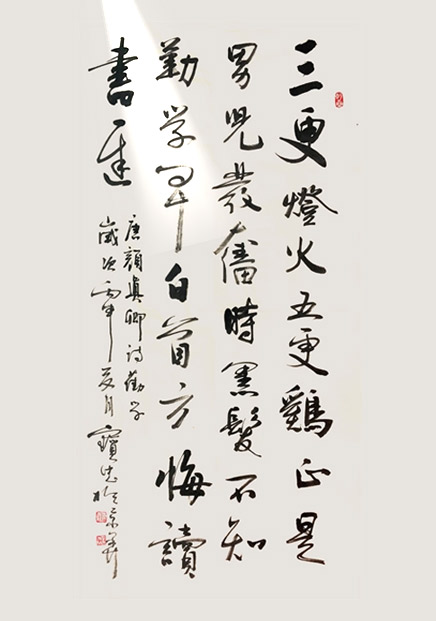 三更燈火五更鷄正是
男兒發奮時黑髮不知
勤學早白首方悔讀
書遲
唐顏真卿詩勸學
歲次丙申夏月寶忠於京